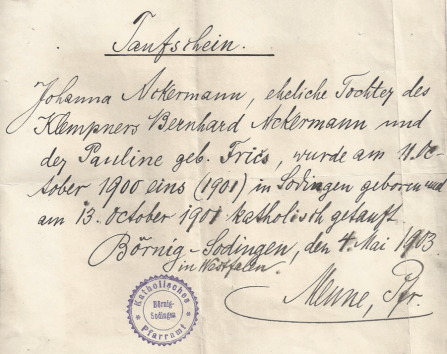 Taufschein.
Johanna Ackermann, eheliche Tochter des
Klempners Bernhard Ackermann und
der Pauline geb. Friès, wurde am 11. Oc-
tober 1900 eins (1901) in Sodingen geboren und
am 13. October 1901 katholisch getauft.
Börnig-Sodingen, den 4. Mai 1903.
in Westfalen.
Menne, Pfr.
Katholisches
Börnig-
Sodingen
Pfarramt